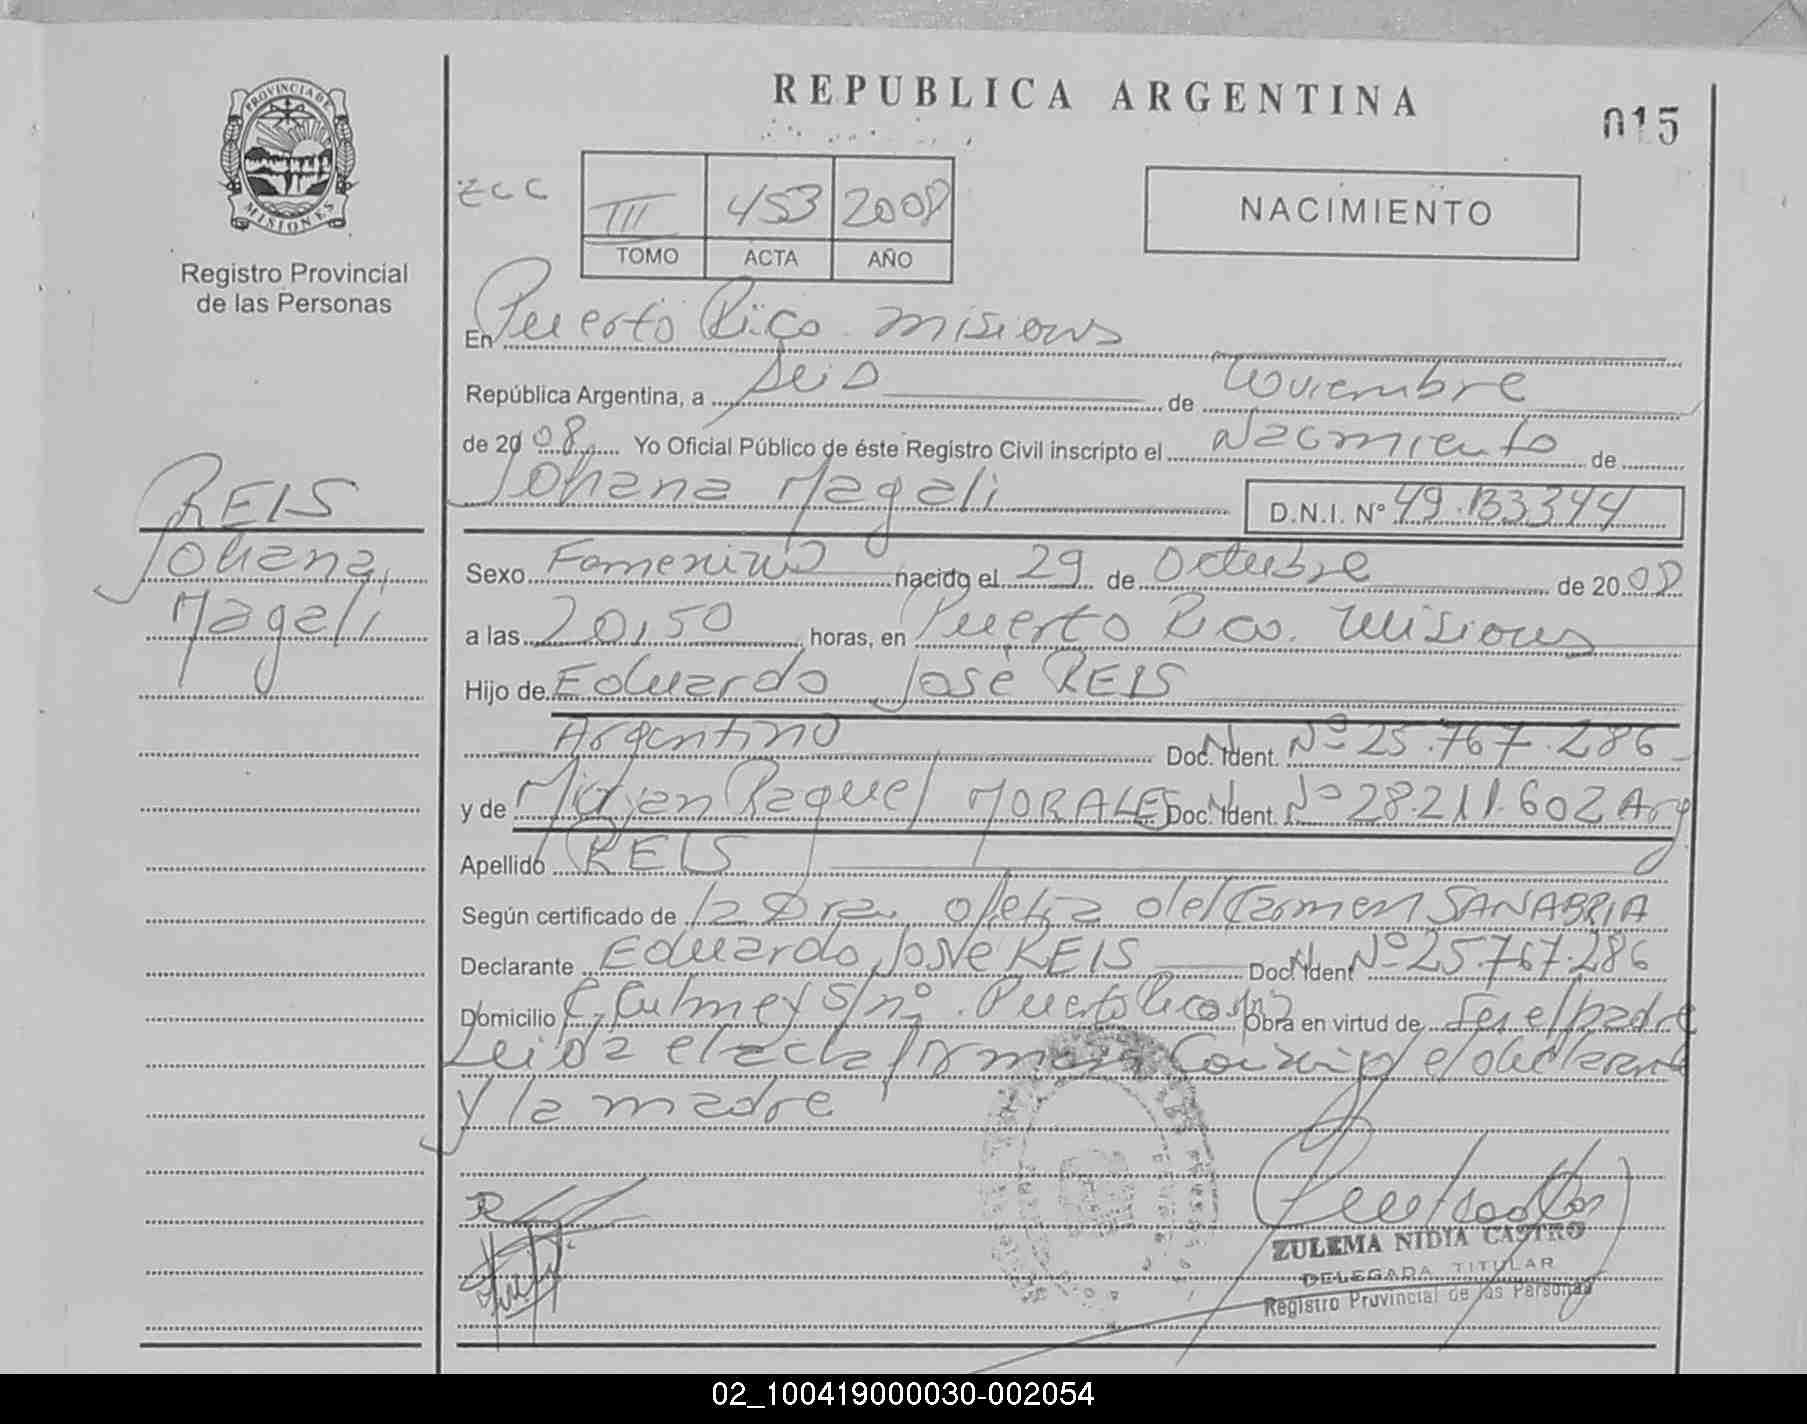 REPUBLICA ARGENTINA
015
PROVINCIA DE
MISIONES
Registro Provincial
de las Personas
III 453 2008
TOMO ACTA AÑO
NACIMIENTO
En Puerto Rico. Misiones
República Argentina, a Seis de Noviembre
de 2008 Yo Oficial Público de éste Registro Civil inscripto el Nacimiento de
Johana Magali D.N.I. Nº 49.133344
REIS
Johana,
Magali
Sexo Femenino nacido el 29 de Octubre de 2008
a las 20,50 horas, en Puerto Rico. Misiones
Hijo de Eduardo José REIS
Argentino Doc. Ident. Nº 25.767.286
y de Miryan Raquel MORALES Doc. Ident. Nº 28.211.602 Arg
Apellido REIS
Según certificado de la Dra. Ofelia del Carmen SANABRIA
Declarante Eduardo José REIS Doc. Ident Nº 25.767.286
Domicilio C. Culmey S/nº. Puerto Rico Obra en virtud de Ser el padre
Leida el acta firman Conmigo el declarante
y la madre
ZULEMA NIDIA CASTRO
DELEGADA TITULAR
Registro Provincial de las Personas
02_100419000030-002054